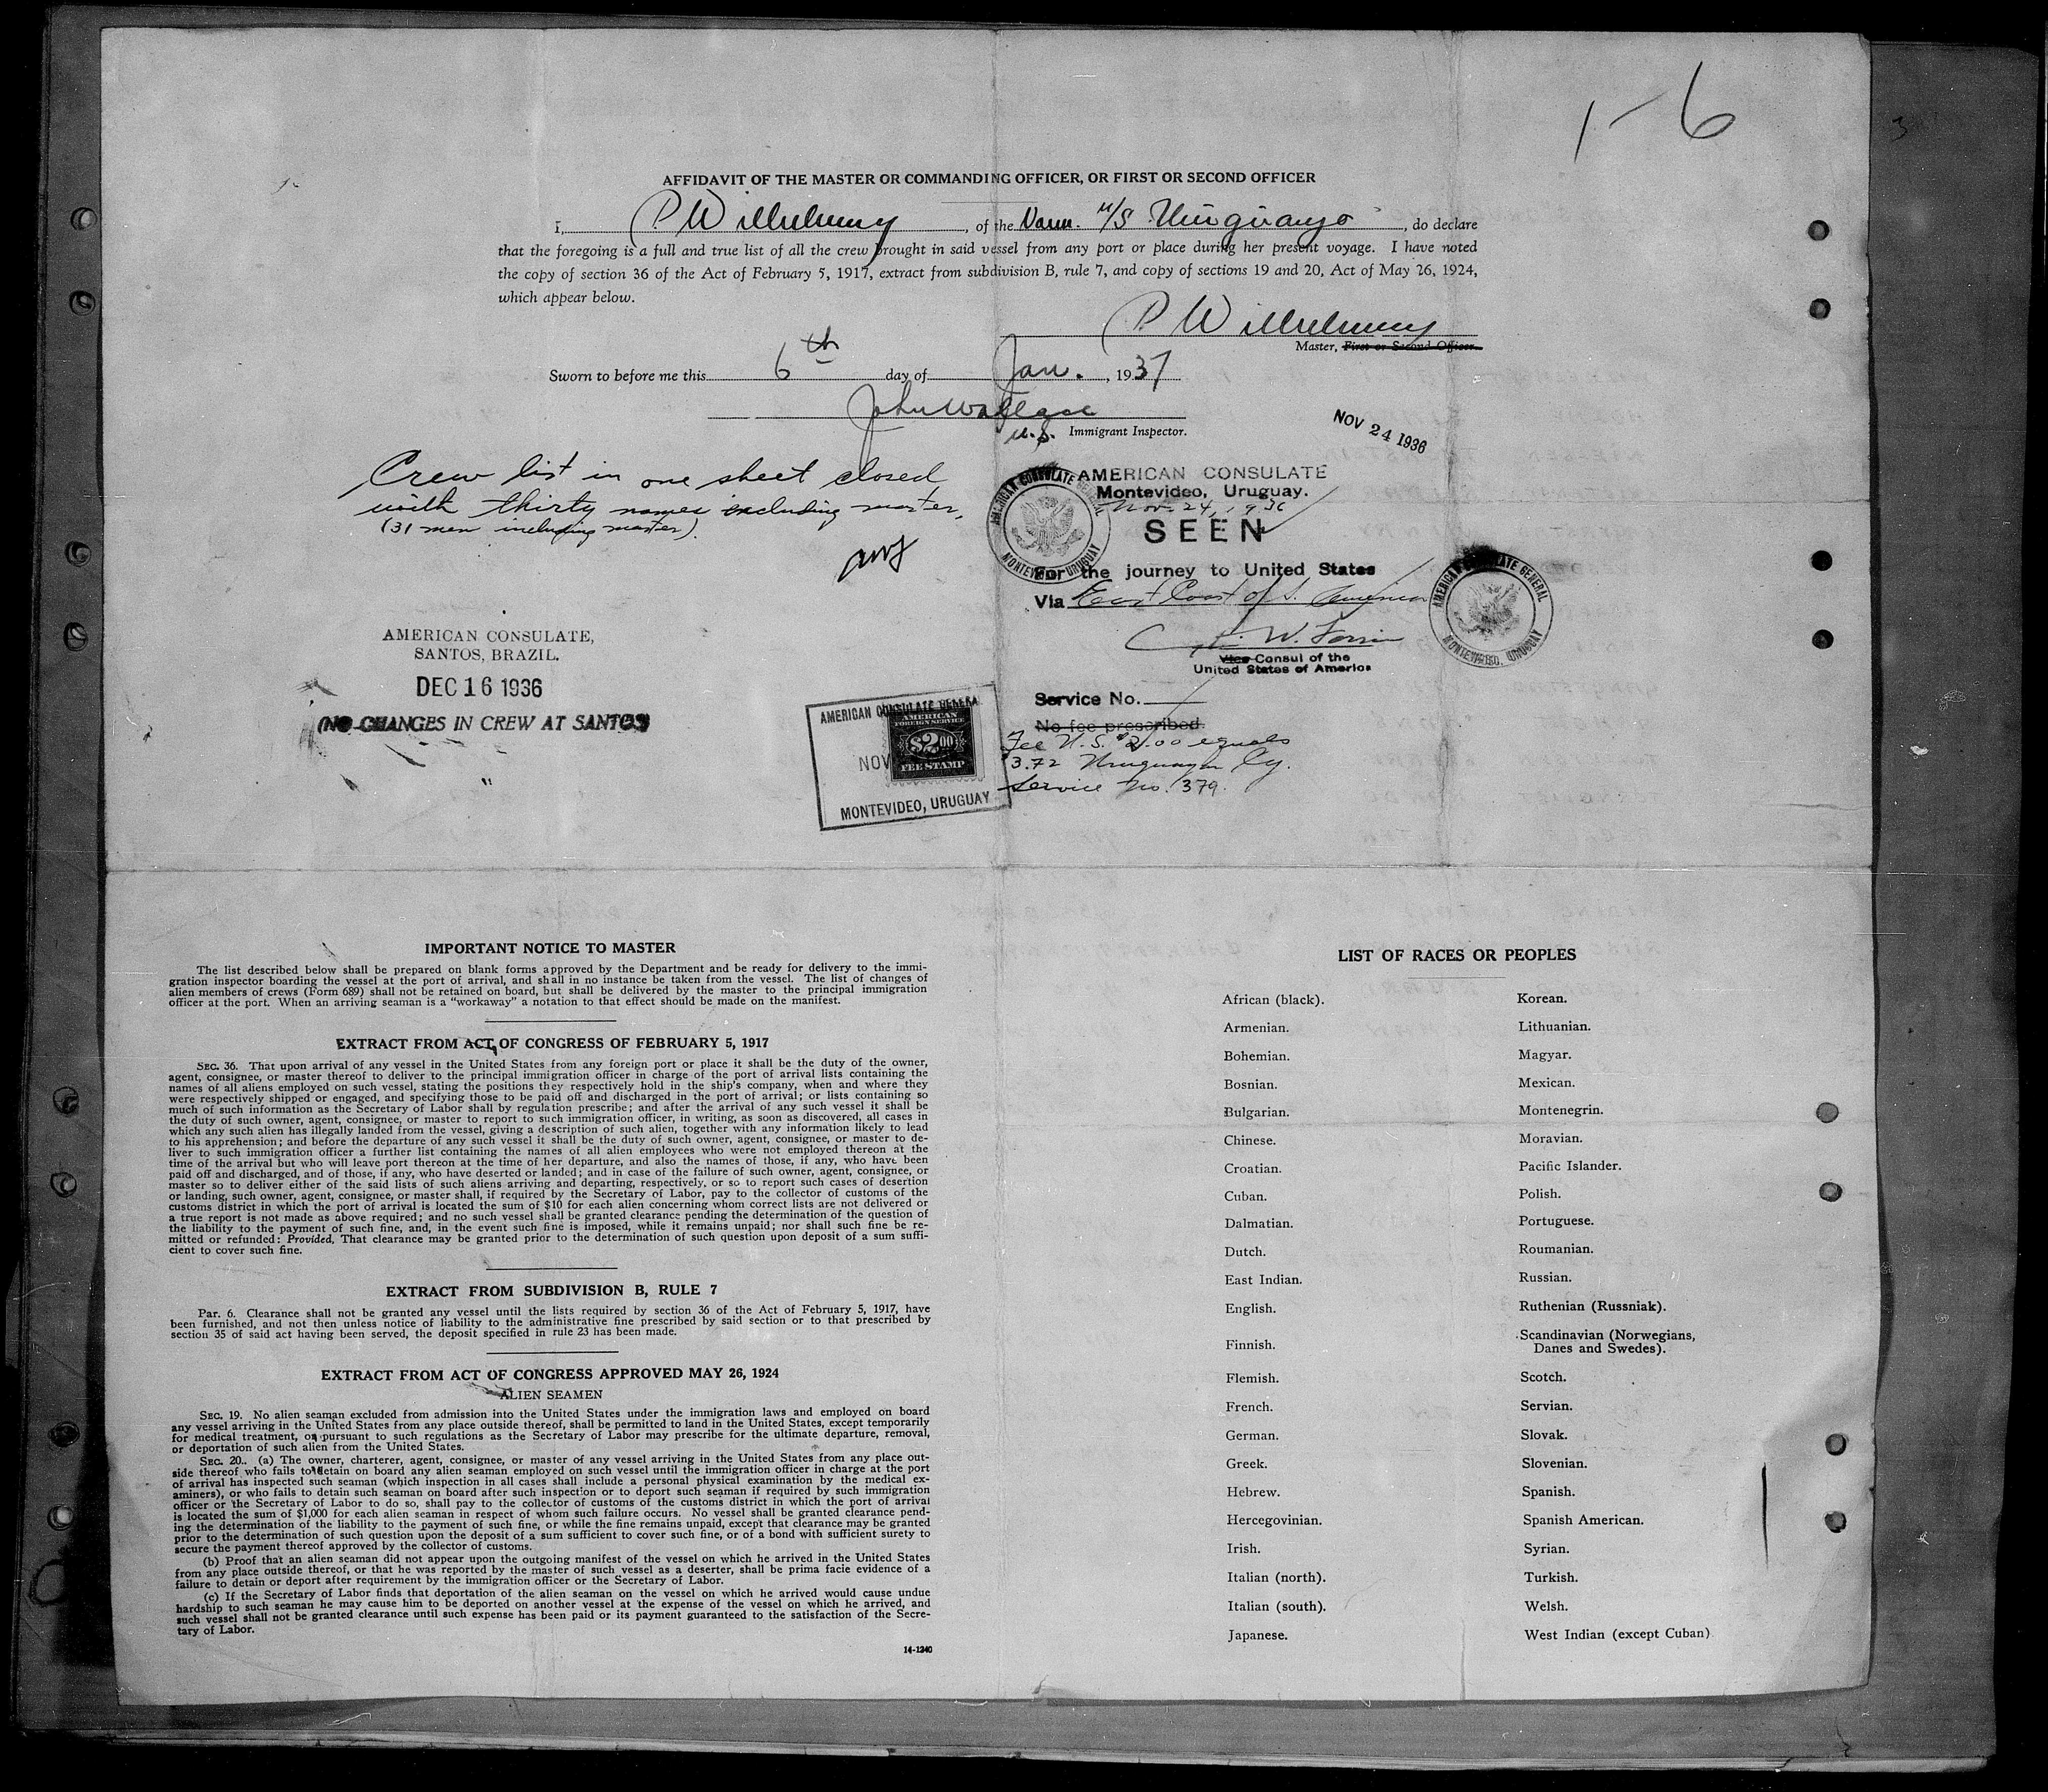 1-6
3
AFFIDAVIT OF THE MASTER OR COMMANDING OFFICER, OR FIRST OR SECOND OFFICER
I, P. Wilhelmsen, of the M/S Uruguayo, do declare
that the foregoing is a full and true list of all the crew brought in said vessel from any port or place during her present voyage. I have noted
the copy of section 36 of the Act of February 5, 1917, extract from subdivision B, rule 7, and copy of sections 19 and 20, Act of May 26, 1924,
which appear below.
Master, First or Second Officer.
Sworn to before me this 6th day of Jan., 1937
John Wallace
U.S. Immigrant Inspector.
NOV 24 1936
Crew list in one sheet closed
with thirty names excluding master.
(31 men including master).
AMERICAN CONSULATE
Montevideo, Uruguay.
Nov. 24, 1936
SEEN
For the journey to United States
Via East Coast of S. America
W.
Vice Consul of the
United States of America
AMERICAN CONSULATE GENERAL
MONTEVIDEO, URUGUAY
AMERICAN CONSULATE GENERAL
MONTEVIDEO, URUGUAY
Service No.
No fee prescribed.
Fee U.S. $2.00 equals
$3.72 Uruguayan Cy.
Service No. 379.
AMERICAN CONSULATE,
SANTOS, BRAZIL.
DEC 16 1936
(NO CHANGES IN CREW AT SANTOS)
AMERICAN CONSULATE GENERAL
NOV
MONTEVIDEO, URUGUAY
AMERICAN
FOREIGN SERVICE
$2.00
FEE STAMP
IMPORTANT NOTICE TO MASTER
The list described below shall be prepared on blank forms approved by the Department and be ready for delivery to the immi-
gration inspector boarding the vessel at the port of arrival, and shall in no instance be taken from the vessel. The list of changes of
alien members of crews (Form 689) shall not be retained on board, but shall be delivered by the master to the principal immigration
officer at the port. When an arriving seaman is a "workaway" a notation to that effect should be made on the manifest.
EXTRACT FROM ACT OF CONGRESS OF FEBRUARY 5, 1917
SEC. 36. That upon arrival of any vessel in the United States from any foreign port or place it shall be the duty of the owner,
agent, consignee, or master thereof to deliver to the principal immigration officer in charge of the port of arrival lists containing the
names of all aliens employed on such vessel, stating the positions they respectively hold in the ship's company, when and where they
were respectively shipped or engaged, and specifying those to be paid off and discharged in the port of arrival; or lists containing so
much of such information as the Secretary of Labor shall by regulation prescribe; and after the arrival of any such vessel it shall be
the duty of such owner, agent, consignee, or master to report to such immigration officer, in writing, as soon as discovered, all cases in
which any such alien has illegally landed from the vessel, giving a description of such alien, together with any information likely to lead
to his apprehension; and before the departure of any such vessel it shall be the duty of such owner, agent, consignee, or master to de-
liver to such immigration officer a further list containing the names of all alien employees who were not employed thereon at the
time of the arrival but who will leave port thereon at the time of her departure, and also the names of those, if any, who have been
paid off and discharged, and of those, if any, who have deserted or landed; and in case of the failure of such owner, agent, consignee, or
master so to deliver either of the said lists of such aliens arriving and departing, respectively, or so to report such cases of desertion
or landing, such owner, agent, consignee, or master shall, if required by the Secretary of Labor, pay to the collector of customs of the
customs district in which the port of arrival is located the sum of $10 for each alien concerning whom correct lists are not delivered or
a true report is not made as above required; and no such vessel shall be granted clearance pending the determination of the question of
the liability to the payment of such fine, and, in the event such fine is imposed, while it remains unpaid; nor shall such fine be re-
mitted or refunded: Provided, That clearance may be granted prior to the determination of such question upon deposit of a sum suffi-
cient to cover such fine.
EXTRACT FROM SUBDIVISION B, RULE 7
Par. 6. Clearance shall not be granted any vessel until the lists required by section 36 of the Act of February 5, 1917, have
been furnished, and not then unless notice of liability to the administrative fine prescribed by said section or to that prescribed by
section 35 of said act having been served, the deposit specified in rule 23 has been made.
EXTRACT FROM ACT OF CONGRESS APPROVED MAY 26, 1924
ALIEN SEAMEN
SEC. 19. No alien seaman excluded from admission into the United States under the immigration laws and employed on board
any vessel arriving in the United States from any place outside thereof, shall be permitted to land in the United States, except temporarily
for medical treatment, or pursuant to such regulations as the Secretary of Labor may prescribe for the ultimate departure, removal,
or deportation of such alien from the United States.
SEC. 20. (a) The owner, charterer, agent, consignee, or master of any vessel arriving in the United States from any place out-
side thereof who fails to detain on board any alien seaman employed on such vessel until the immigration officer in charge at the port
of arrival has inspected such seaman (which inspection in all cases shall include a personal physical examination by the medical ex-
aminers), or who fails to detain such seaman on board after such inspection or to deport such seaman if required by such immigration
officer or the Secretary of Labor to do so, shall pay to the collector of customs of the customs district in which the port of arrival
is located the sum of $1,000 for each alien seaman in respect of whom such failure occurs. No vessel shall be granted clearance pend-
ing the determination of the liability to the payment of such fine, or while the fine remains unpaid, except that clearance may be granted
prior to the determination of such question upon the deposit of a sum sufficient to cover such fine, or of a bond with sufficient surety to
secure the payment thereof approved by the collector of customs.
(b) Proof that an alien seaman did not appear upon the outgoing manifest of the vessel on which he arrived in the United States
from any place outside thereof, or that he was reported by the master of such vessel as a deserter, shall be prima facie evidence of a
failure to detain or deport after requirement by the immigration officer or the Secretary of Labor.
(c) If the Secretary of Labor finds that deportation of the alien seaman on the vessel on which he arrived would cause undue
hardship to such seaman he may cause him to be deported on another vessel at the expense of the vessel on which he arrived, and
such vessel shall not be granted clearance until such expense has been paid or its payment guaranteed to the satisfaction of the Secre-
tary of Labor.
14-1240
LIST OF RACES OR PEOPLES
African (black).
Armenian.
Bohemian.
Bosnian.
Bulgarian.
Chinese.
Croatian.
Cuban.
Dalmatian.
Dutch.
East Indian.
English.
Finnish.
Flemish.
French.
German.
Greek.
Hebrew.
Hercegovinian.
Irish.
Italian (north).
Italian (south).
Japanese.
Korean.
Lithuanian.
Magyar.
Mexican.
Montenegrin.
Moravian.
Pacific Islander.
Polish.
Portuguese.
Roumanian.
Russian.
Ruthenian (Russniak).
Scandinavian (Norwegians,
Danes and Swedes).
Scotch.
Servian.
Slovak.
Slovenian.
Spanish.
Spanish American.
Syrian.
Turkish.
Welsh.
West Indian (except Cuban)